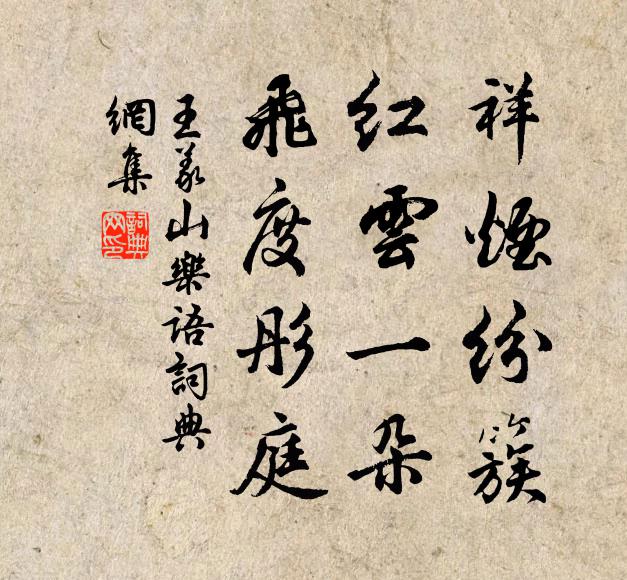 祥煙紛簇
紅雲一朵
飛度彤庭
王義山樂語詞典
網集
詞典網印